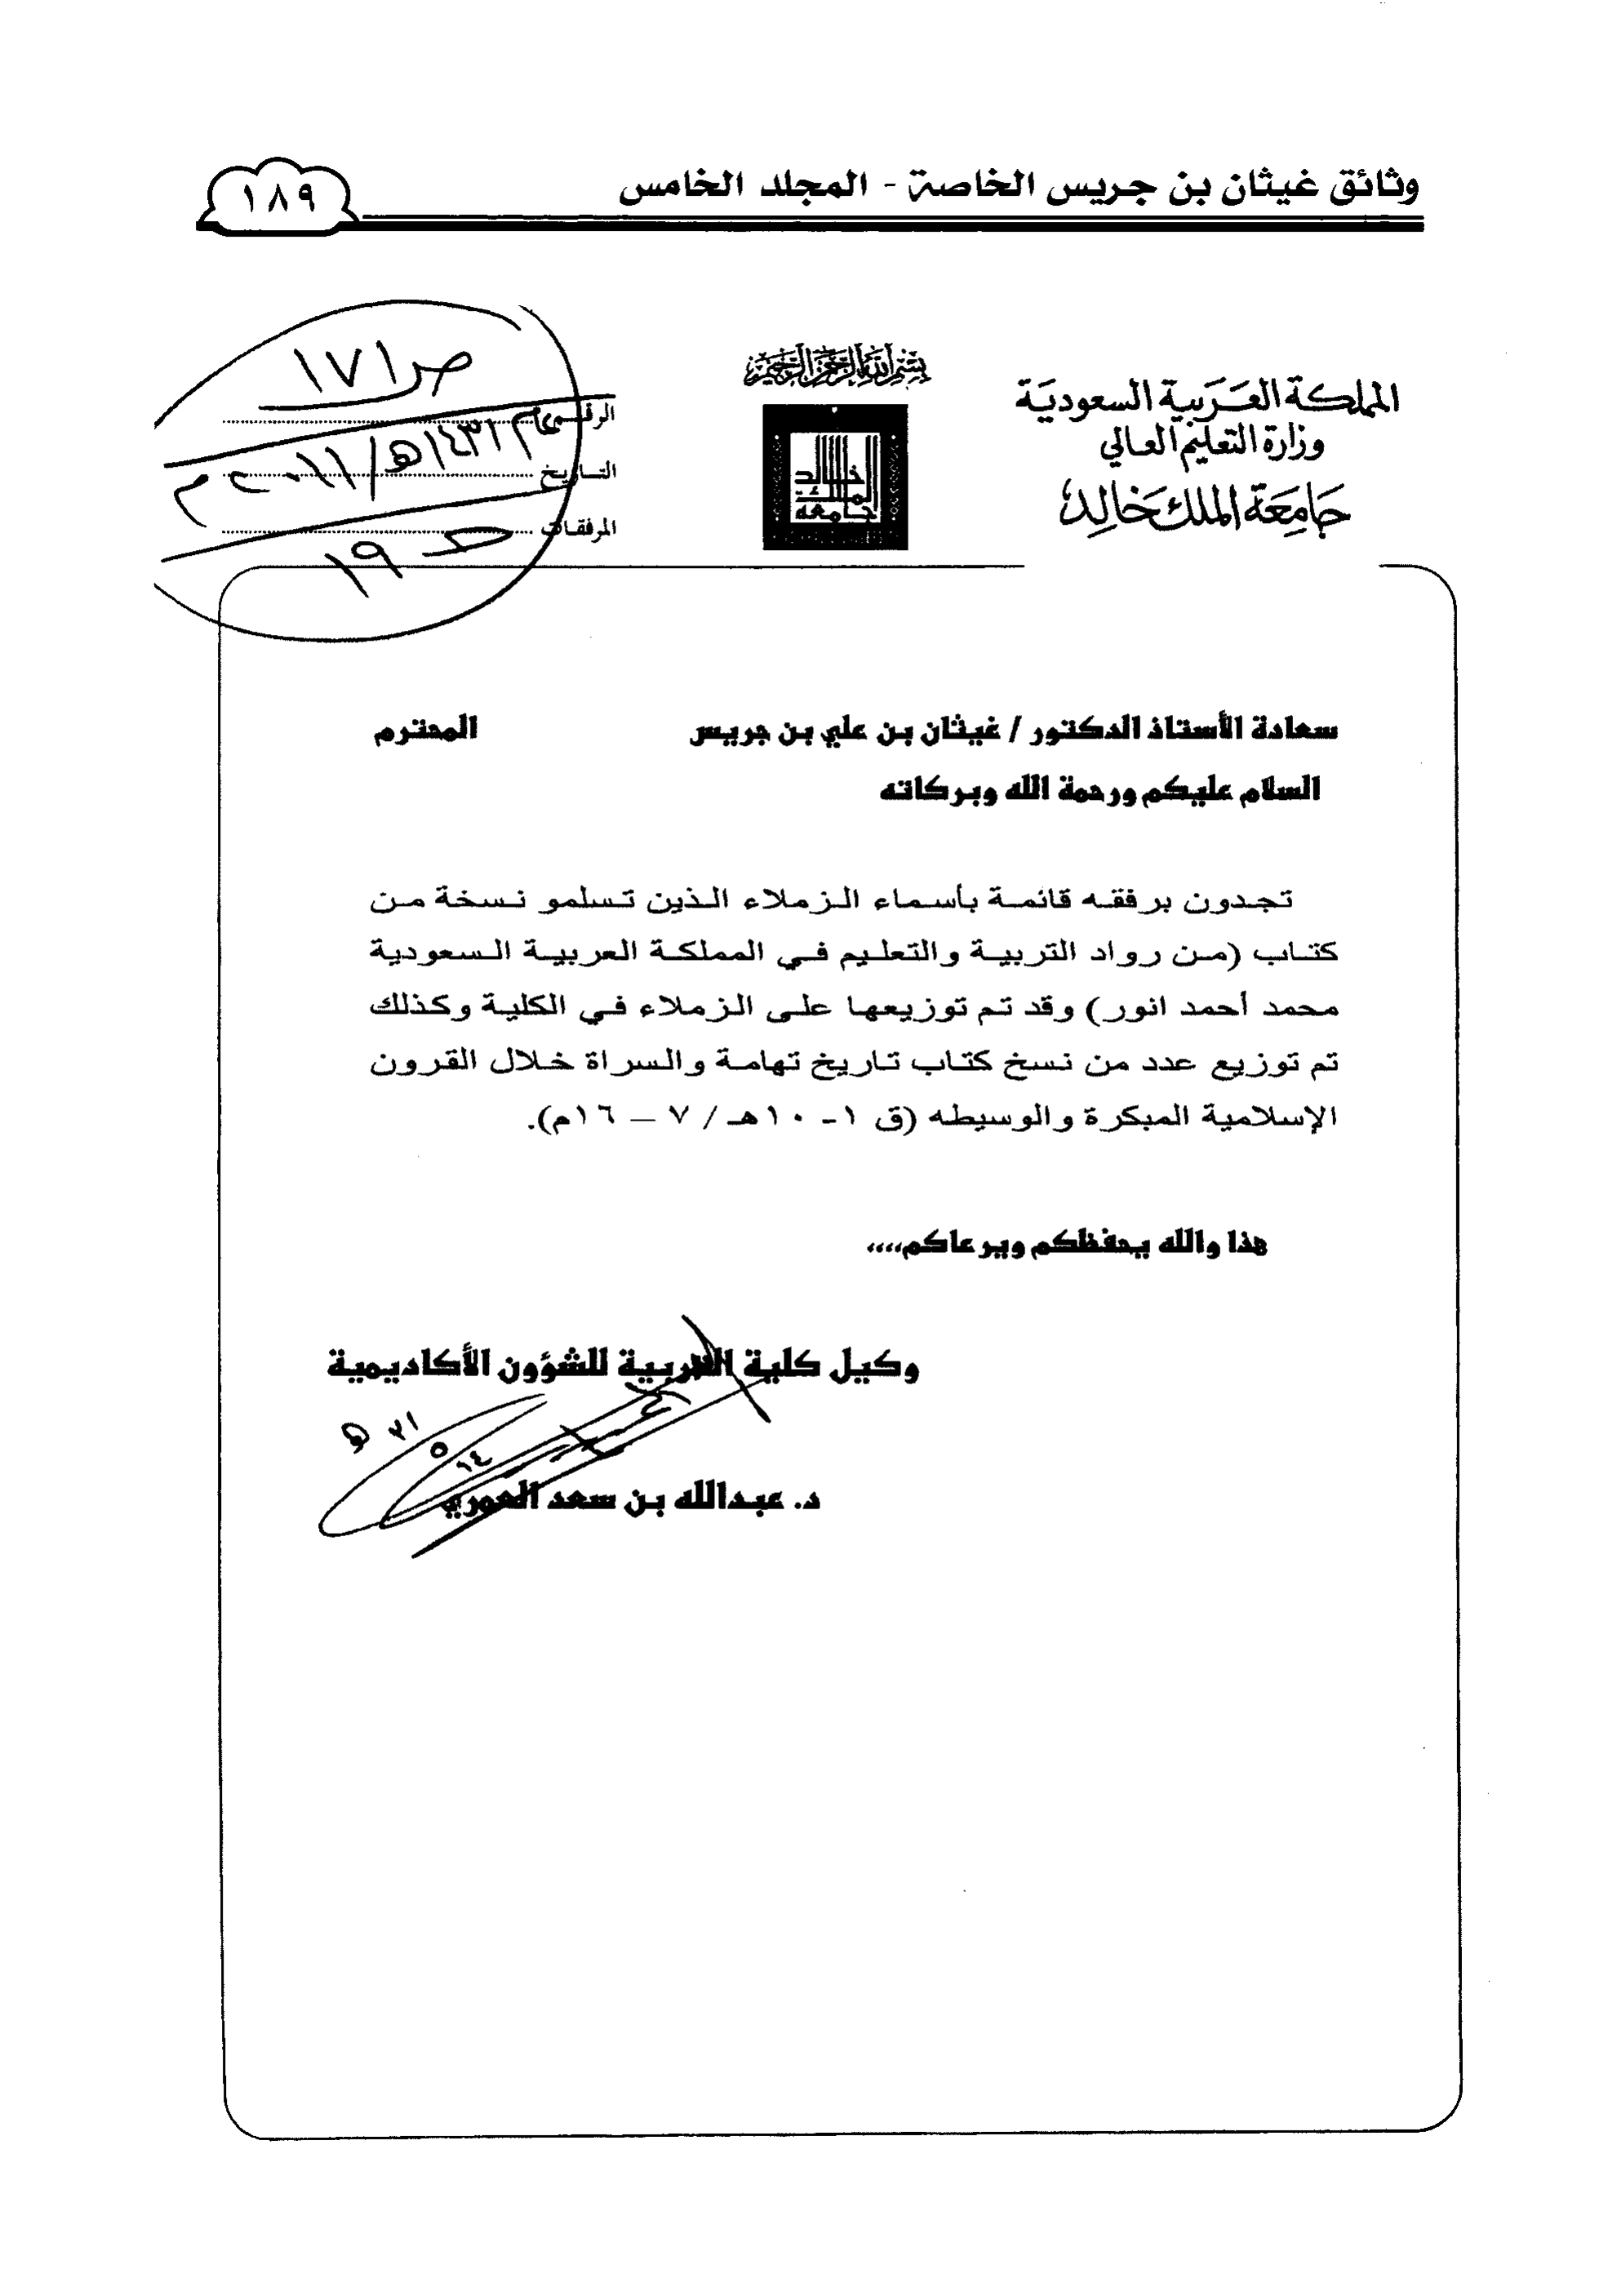 وثائق غيثان بن جريس الخاصة - المجلد الخامس
١٨٩
بسم الله الرحمن الرحيم
المملكة العربية السعودية
وزارة التعليم العالي
جامعة الملك خالد
جامعة الملك خالد
ص ١٧١
الرقم
عام ١٤٣١هـ / ٢٠١١م
التاريخ
المرفقات
ط ١٩
سعادة الأستاذ الدكتور / غيثان بن علي بن جريس المحترم
السلام عليكم ورحمة الله وبركاته
تجدون برفقه قائمة بأسماء الزملاء الذين تسلمو نسخة من
كتاب (من رواد التربية والتعليم في المملكة العربية السعودية
محمد أحمد انور) وقد تم توزيعها على الزملاء في الكلية وكذلك
تم توزيع عدد من نسخ كتاب تاريخ تهامة والسراة خلال القرون
الإسلامية المبكرة والوسيطه (ق ١- ١٠هـ / ٧ – ١٦م).
هذا والله يحفظكم ويرعاكم،،،،
وكيل كلية التربية للشؤون الأكاديمية
١٤ ٥ ٣١ هـ
د. عبدالله بن سعد العمري